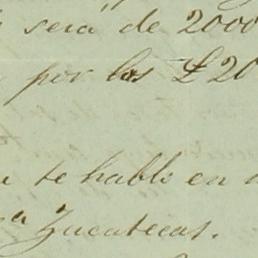 será de 2000
por los £20
te hablo en
Zacatecas.